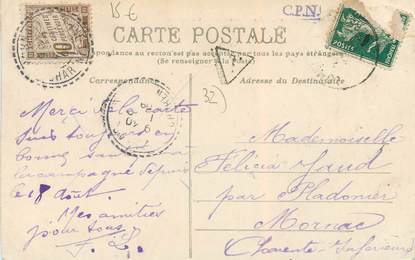 15 €
C.P.N.
CARTE POSTALE
La Correspondance au recto n'est pas acceptée par tous les pays étrangers
(Se renseigner à la Poste)
Correspondance
Adresse du Destinataire
32
10
POSTES
Merci de la carte
suis toujours en
bonne santé
la campagne depuis
le 18 Aout.
Mes amitiés
pour tous
Mademoiselle
Félicia Jaud
par Pladonier
Mornac
Charente Inférieure